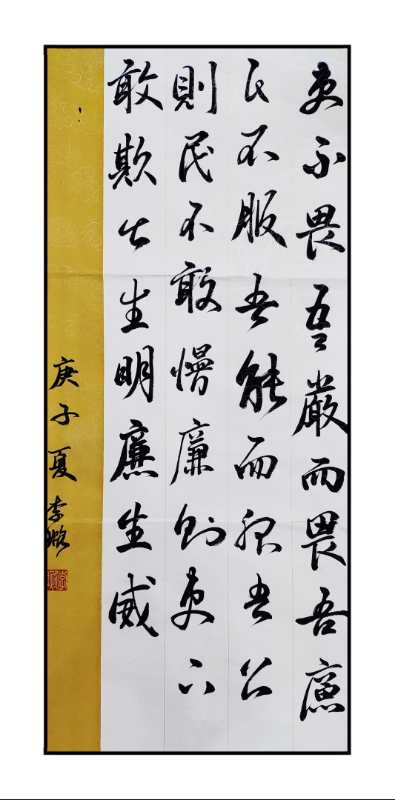 吏不畏吾嚴而畏吾廉
民不服吾能而服吾公
則民不敢慢廉则吏不
敢欺公生明廉生威
庚子夏李